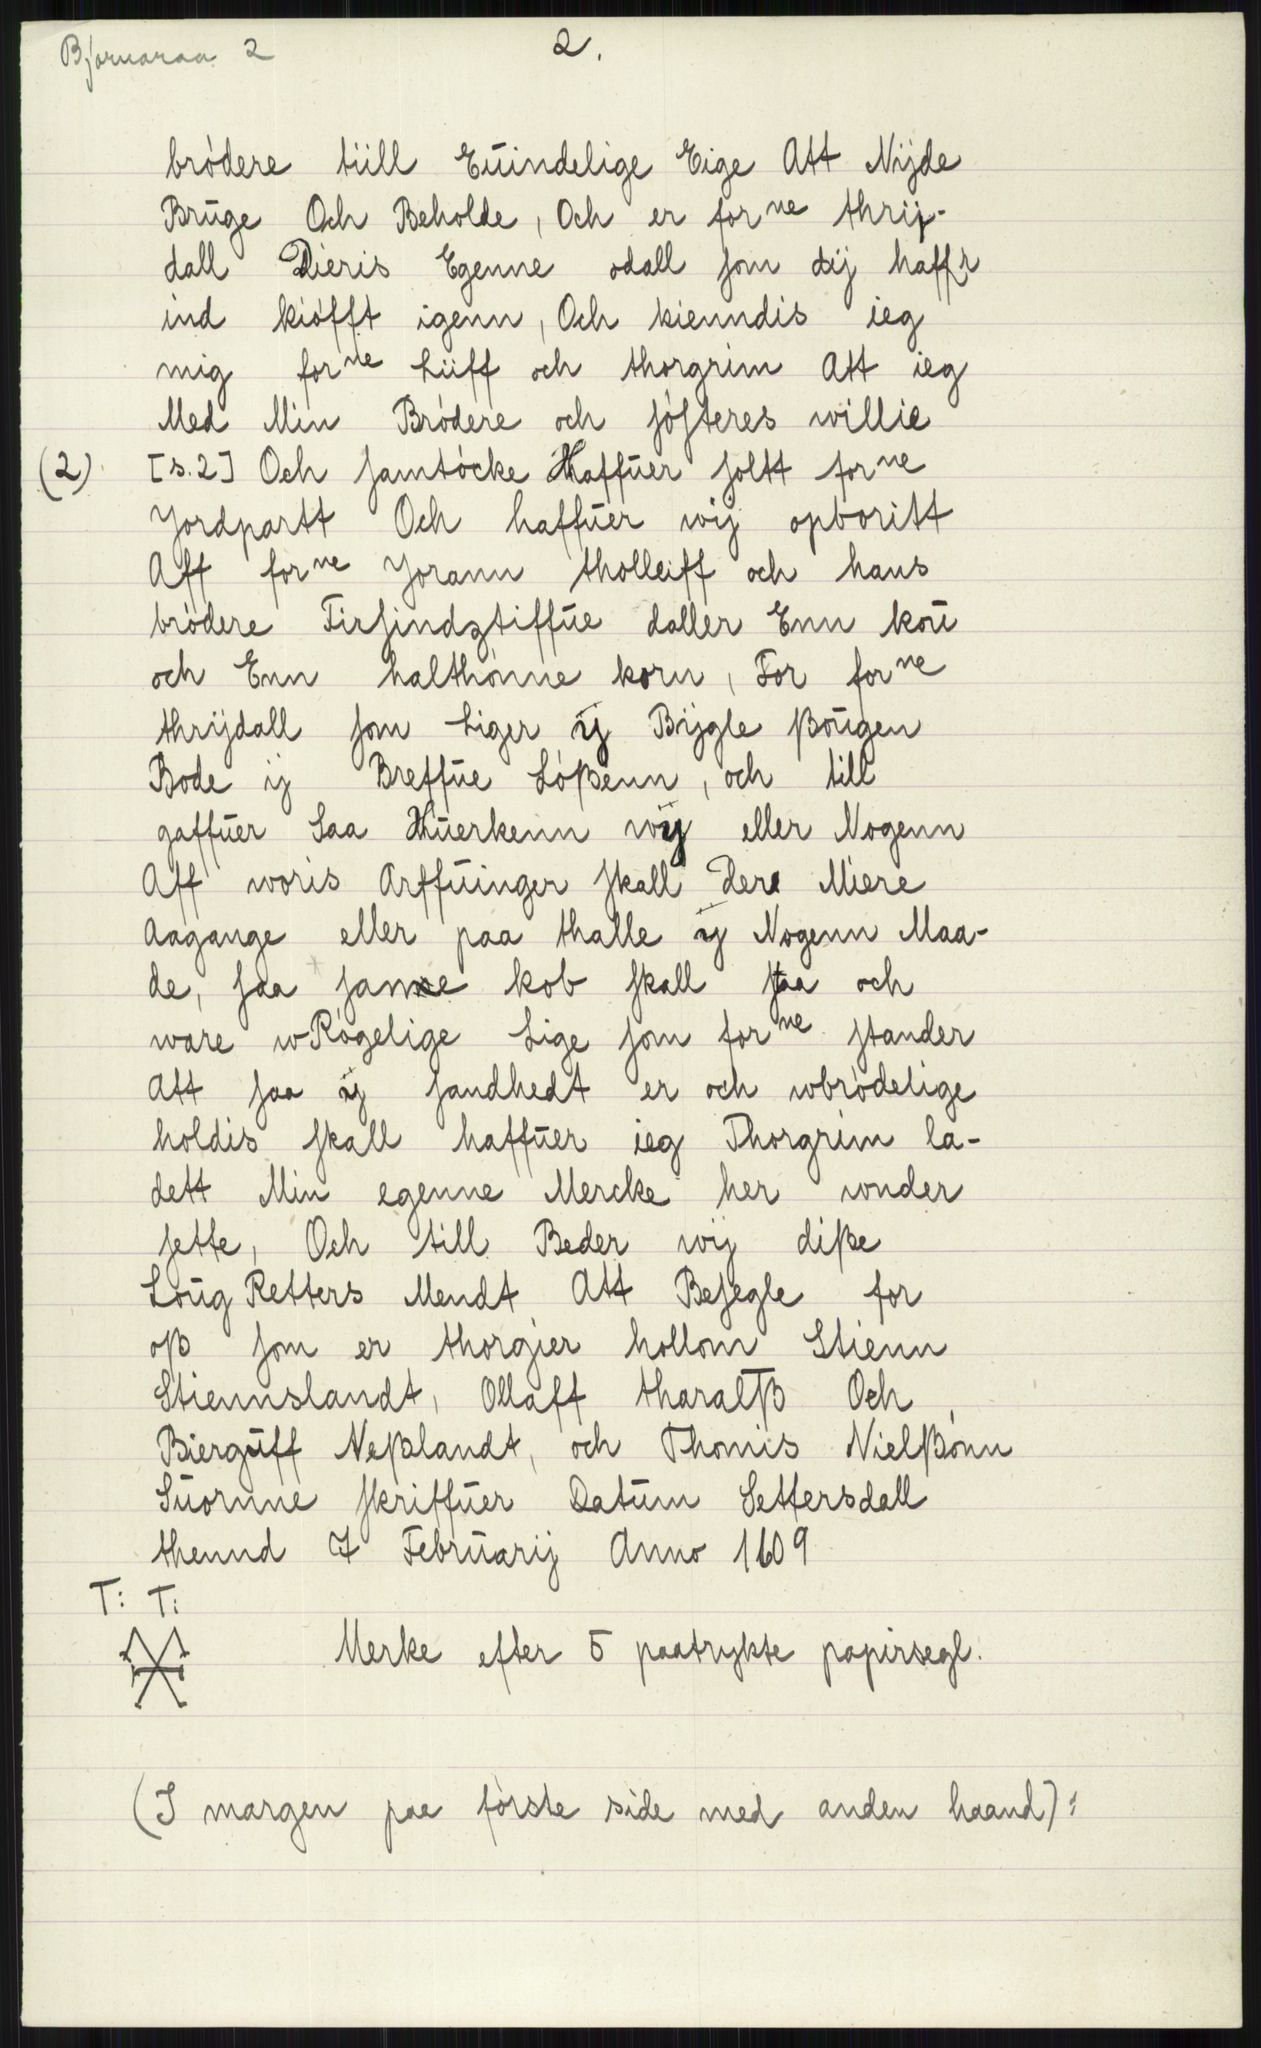 Bjørnaraa 2
2.
brødere tiill Eŭindelige Eige Att Nijde
Brŭge Och Beholde, Och er forne thrij-
dall Dieris Egenne odall som dij haffr
ind kiøfft igenn, Och kienndis ieg
mig forne Liiff och thorgrim Att ieg
Med Min Brødere och søsteres willie
(2) [s.2] Och samtøcke Haffŭer soltt forne
Jordpartt Och haffŭer wij opboritt
Aff forne Jorann tholleiff och hans
brødere Firsindztiffŭe daller Enn koŭ
och Enn halthønne korn, For forne
thrijdall som Liger ij Bijgle ßoŭgen
Bode ij Breffŭe Løßenn, och till
gaffŭer Saa Hŭerkenn wij eller Nogenn
Aff woris Arffŭinger skall Der Miere
Aagange eller paa thalle ij Nogenn Maa-
de, saa samme kob skall staa och
ware wRøgelige Lige som forne stander
Att saa ij sandhedt er och wbrødelige
holdis skall haffŭer ieg Thorgrim la-
dett Min egenne Mercke her wnder
sette, Och till Beder wij diße
Loŭg Retters Mendt Att Besegle for
oß som er thorgier hollom Stienn
Stiennslandt, Ollaff tharalß Och
Biergŭff Neßlandt, och Thomis Nielßønn
Sŭornne skriffŭer Datŭm Settersdall
thennd 7 Febrŭarij Anno 1609
T: T:
Merke efter 5 paatrykte papirsegl.
(I margen paa første side med anden haand):